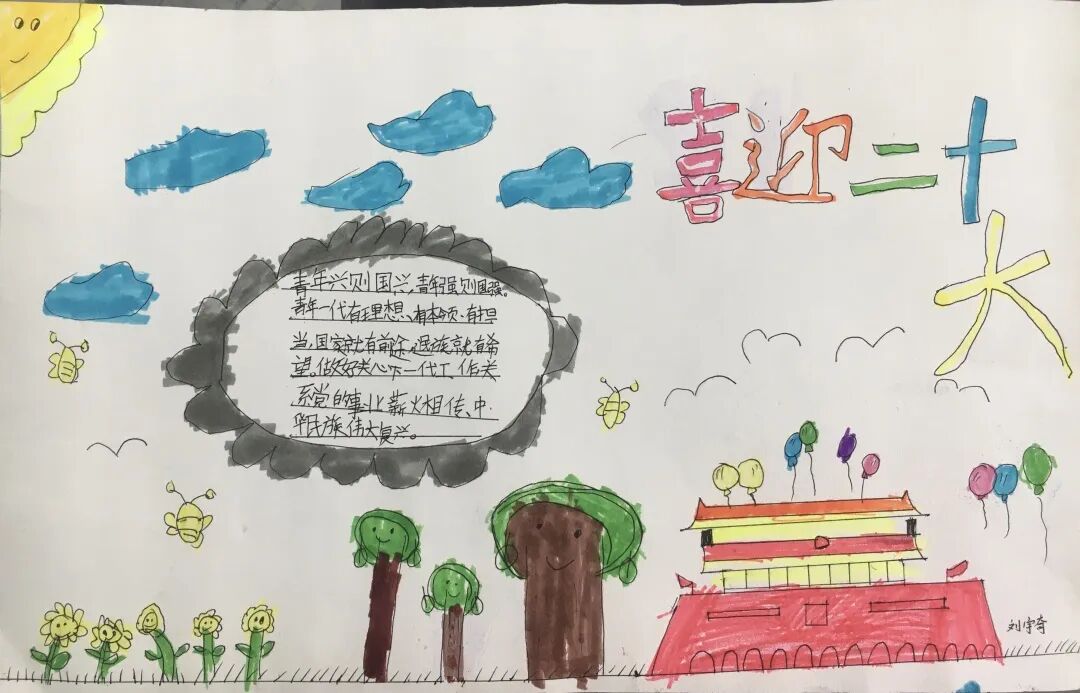 喜迎二十
大
青年兴则国兴,青年强则国强。
青年一代有理想、有本领、有担
当,国家就有前途,民族就有希
望,做好关心下一代工作,关
系党的事业薪火相传、中
华民族伟大复兴。
刘宇奇